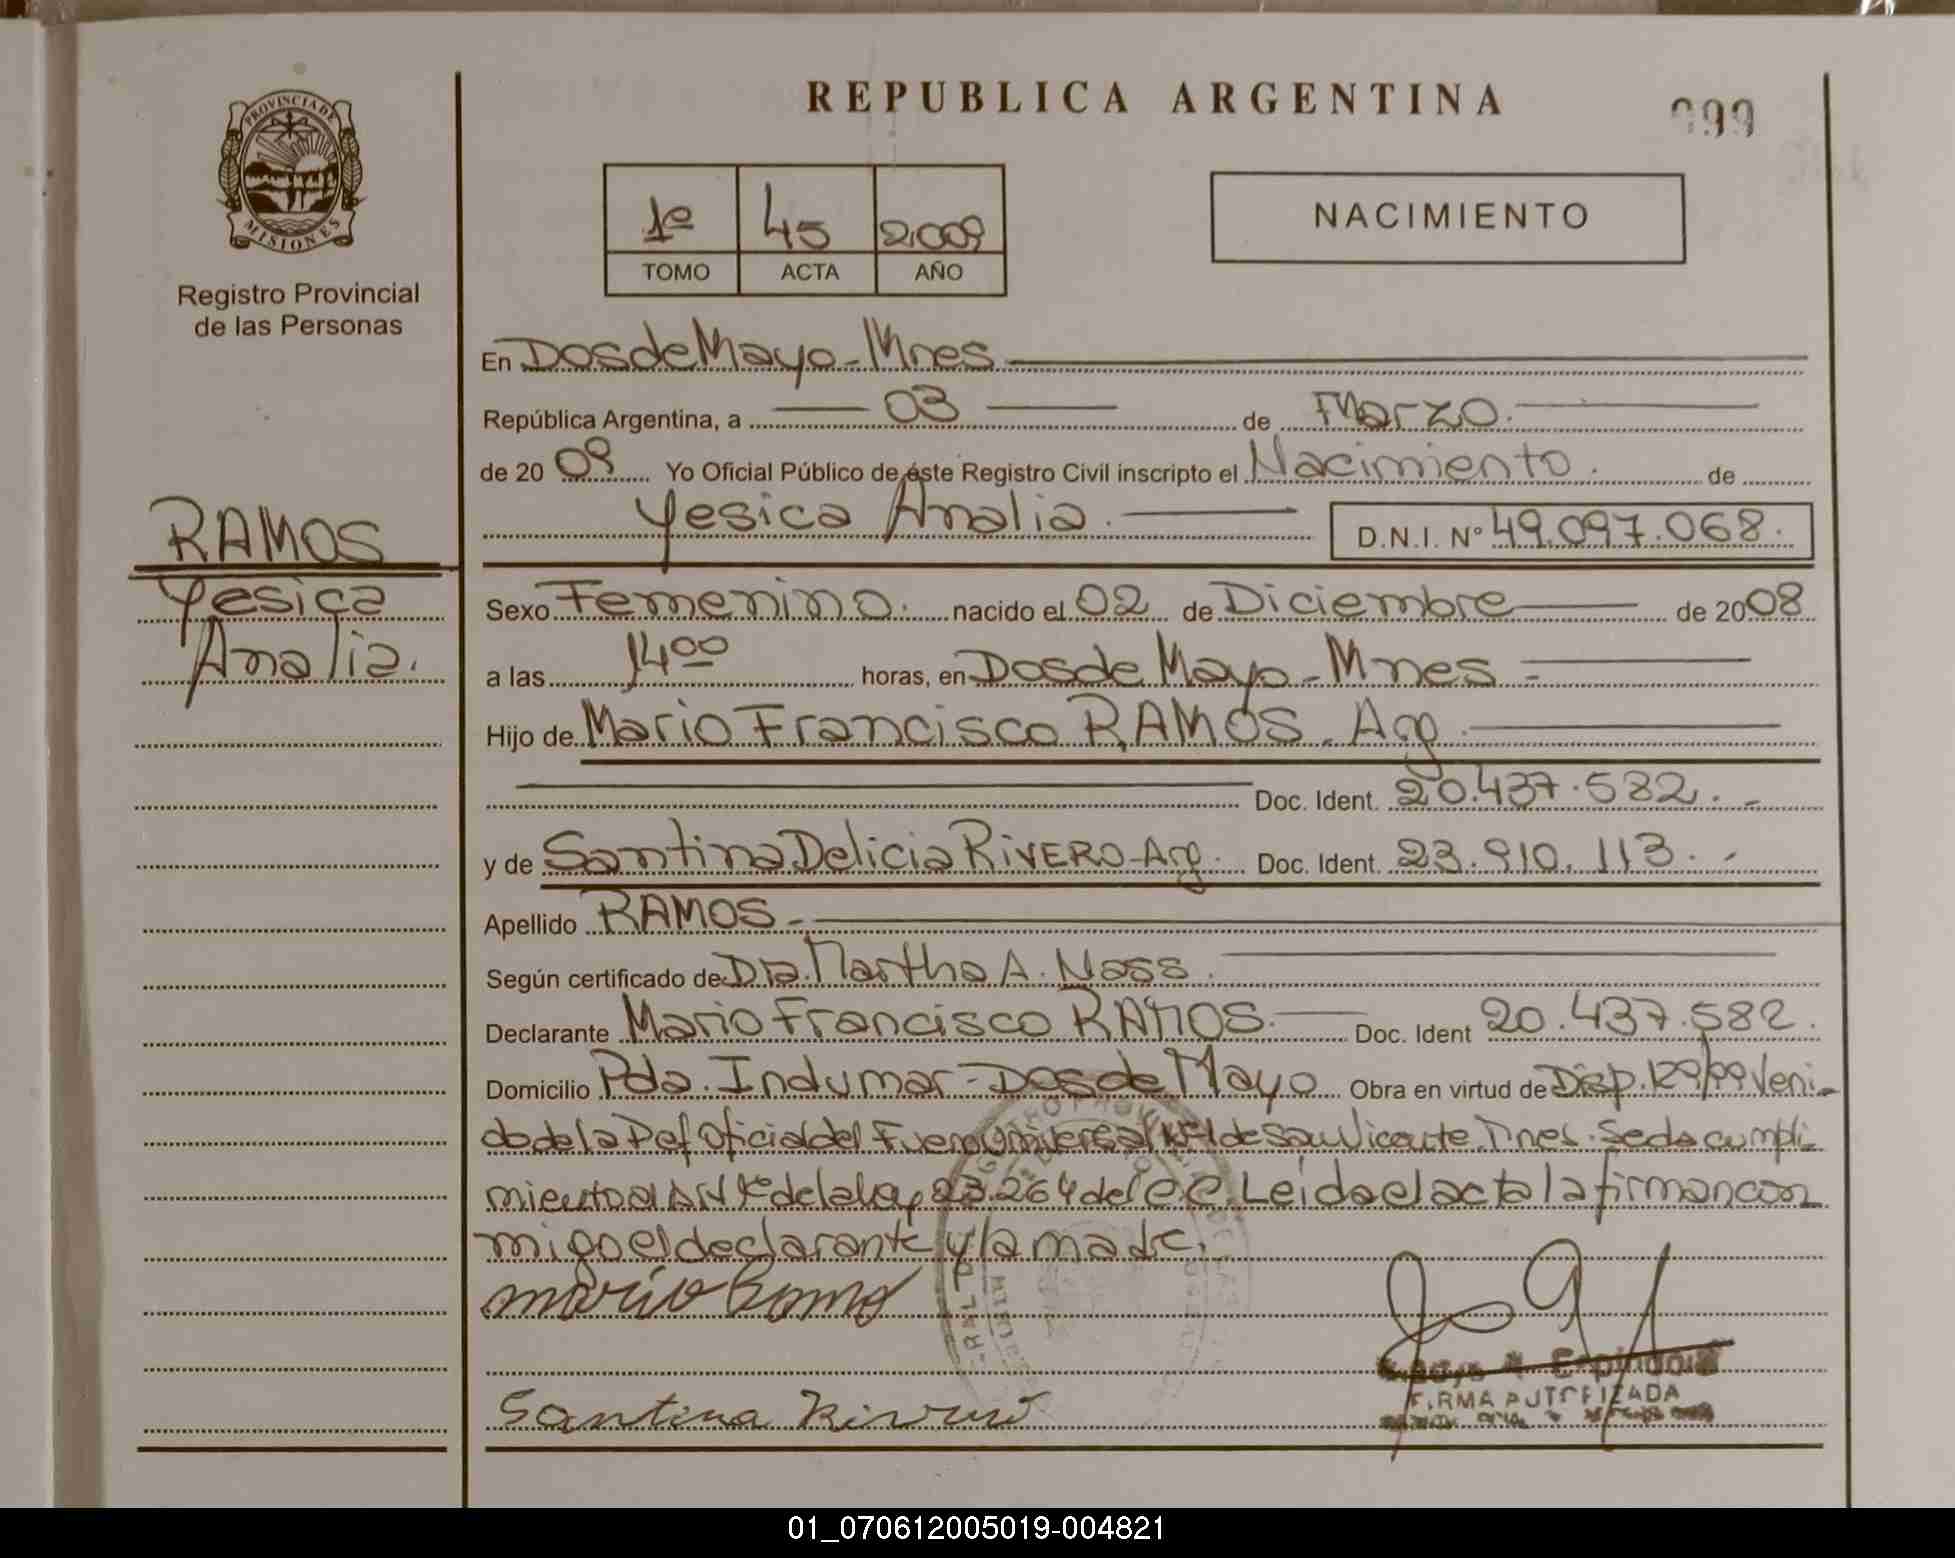 REPUBLICA ARGENTINA
099
PROVINCIA DE
MISIONES
Registro Provincial
de las Personas
1º 45 2009
TOMO ACTA AÑO
NACIMIENTO
En Dos de Mayo - Mnes
República Argentina, a 03 de Marzo.
de 20 09 Yo Oficial Público de éste Registro Civil inscripto el Nacimiento. de
Yesica Analia. D.N.I. Nº 49.097.068.
RAMOS
Yesica
Analia.
Sexo Femenino. nacido el 02 de Diciembre de 2008
a las 14 00 horas, en Dos de Mayo - Mnes -
Hijo de Mario Francisco RAMOS. Arg.
Doc. Ident. 20.437.582. -
y de Santina Delicia RIVERO - Arg. Doc. Ident. 23.910.113. -
Apellido RAMOS -
Según certificado de Dra. Martha A. Nass.
Declarante Mario Francisco RAMOS. Doc. Ident 20.437.582.
Domicilio Pda. Indumar - Dos de Mayo Obra en virtud de Disp. 129/99 Veni-
do de la Def Oficial del Fuero Universal Nº1 de San Vicente. Mnes. Se da cumpli-
miento al Art 1º de la Ley 23.264 del C.C. Leida el acta la firman con
migo el declarante y la madre.
Mario Ramo
Santina Rivero
Espindola
FIRMA AUTORIZADA
01_070612005019-004821